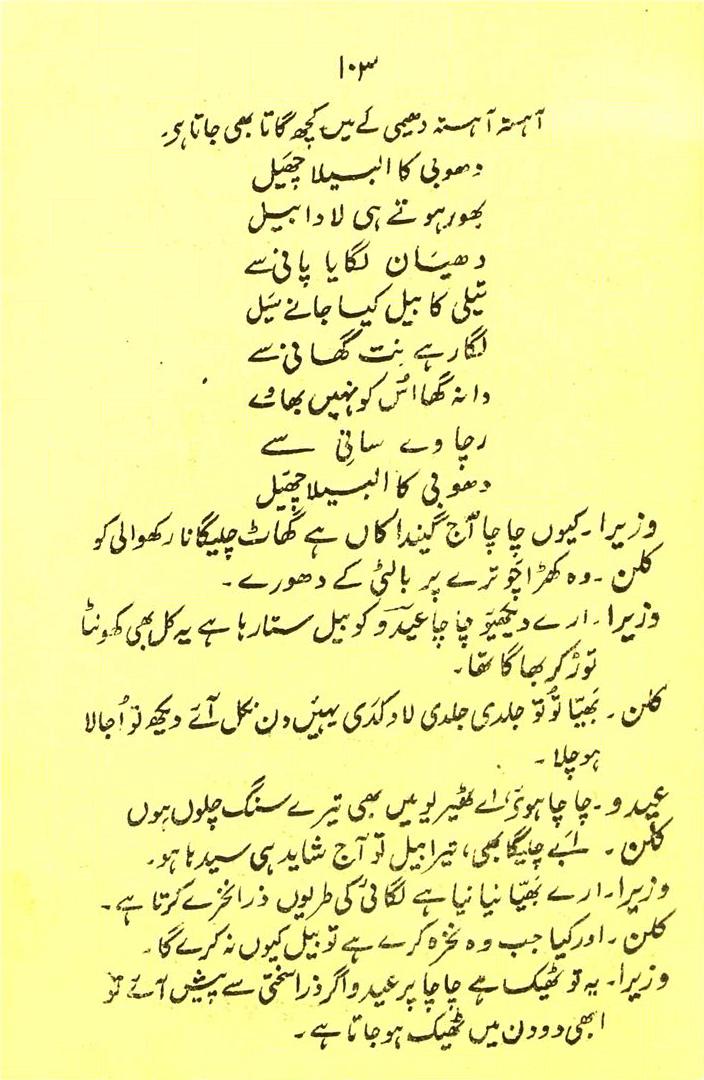 ۱۰۳
آہستہ آہستہ دھیمی لے میں کچھ گاتا بھی جاتا ہو۔
دھوبی کا البیلا چھیَل
بھور ہوتے ہی لادا بیل
دھیان لگایا پانی سے
تیلی کا بیل کیا جانے سَیل
لگا رہے نِت گھانی سے
دانہ گھا اُس کو نہیں بھاوے
رچاوے سانی سے
دھوبی کا البیلا چھیَل
وزیرا۔ کیوں چاچا آج گیندا کاں ہے گھاٹ چلیگا نا رکھوالی کو
کلن۔ وہ کھڑا چَوترے پر بالٹی کے دھورے۔
وزیرا۔ ارے دیکھیو چاچا عیدو کو بیل ستا رہا ہے یہ کل بھی کھونٹا
توڑ کر بھاگا تھا۔
کلن۔ بھیّا تُو تو جلدی جلدی لاد کدَی یہیں دن نکل آئے دیکھ تو اُجالا
ہو چلا۔
عیدو۔ چاچا ہوئے، اے ٹھیریو میں بھی تیرے سنگ چلوں ہوں
کلن۔ اَبے چلیگا بھی، تیرا بیل تو آج شاید ہی سیدہا ہو۔
وزیرا۔ ارے بھیّا نیا نیا ہے لگائی کی طریوں ذرا نخرے کرتا ہے۔
کلن۔ اور کیا جب وہ نخرہ کرے ہے تو بیل کیوں نہ کرے گا۔
وزیرا۔ یہ تو ٹھیک ہے چاچا پر عیدو اگر ذرا سختی سے پیش آئے تو
ابھی دو دن میں ٹھیک ہو جاتا ہے۔